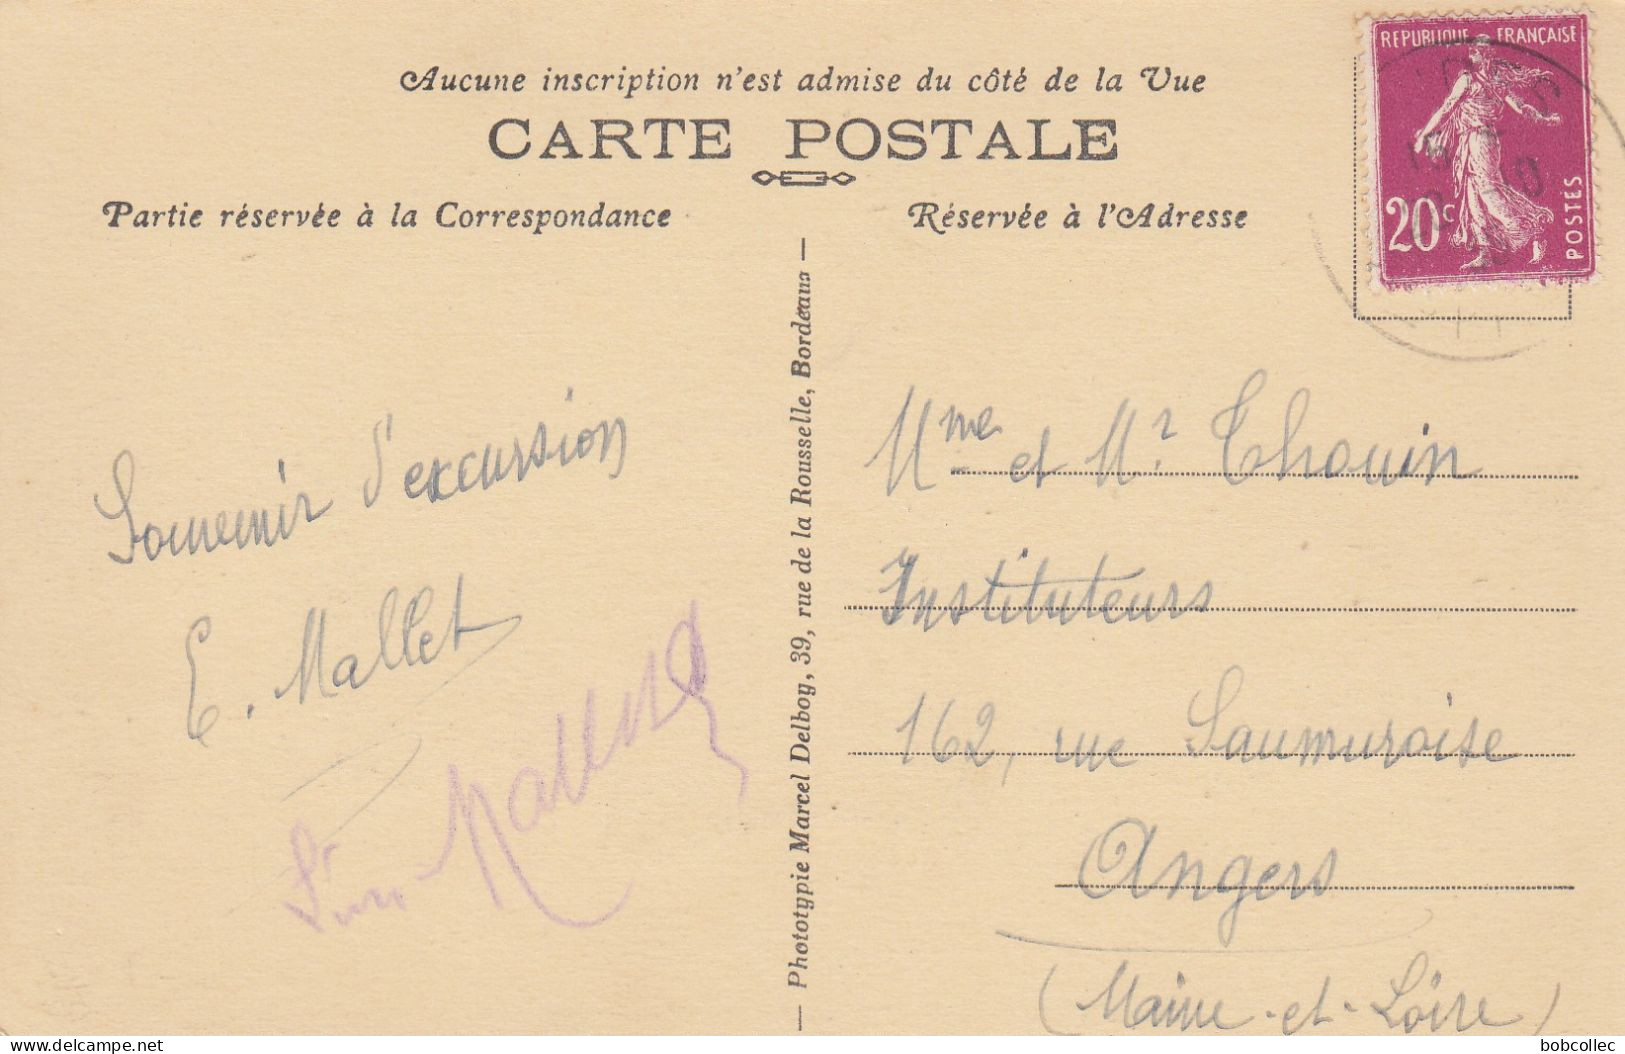 Aucune inscription n'est admise du côté de la Vue
CARTE POSTALE
Partie réservée à la Correspondance
Réservée à l'Adresse
REPUBLIQUE FRANÇAISE
20c
POSTES
Souvenir d'excursion
E. Mallet
— Phototypie Marcel Delboy, 39, rue de la Rousselle, Bordeaux —
Mme et Mr Thouin
Instituteurs
162, rue Saumuroise
Angers
(Maine-et-Loire)
bobcollec